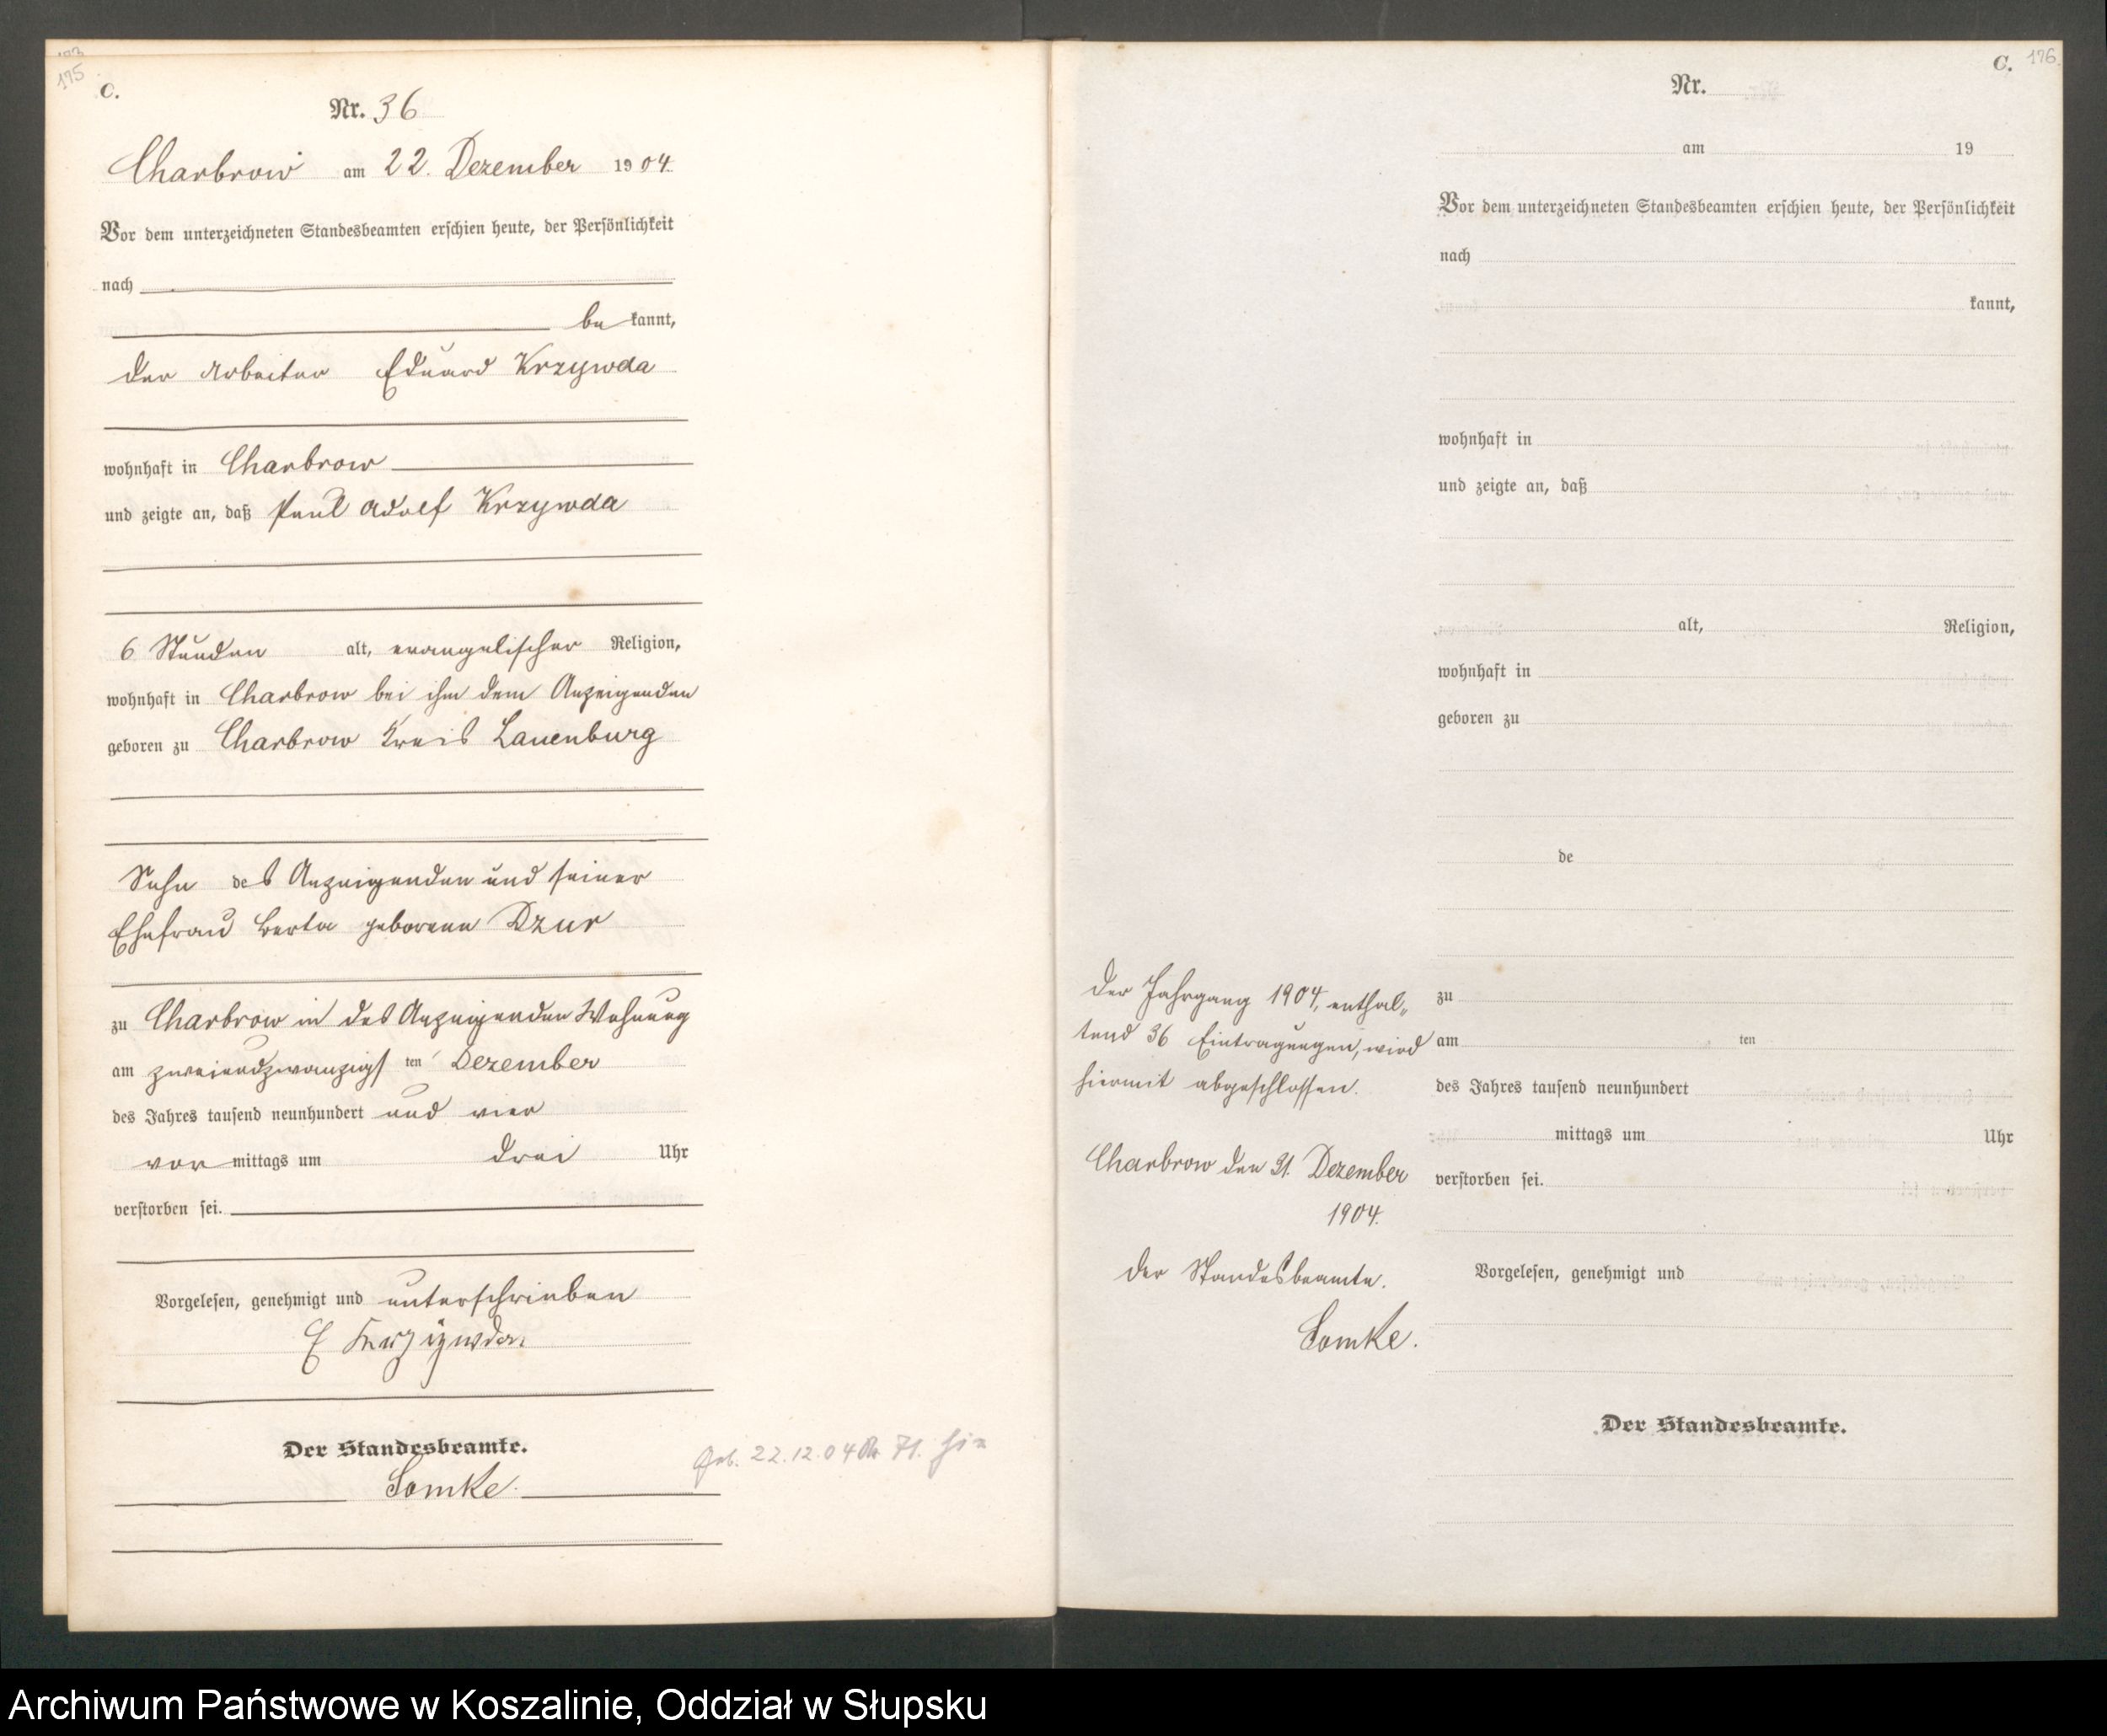 175
C.
Nr. 36
Charbrow am 22. Dezember 1904.
Vor dem unterzeichneten Standesbeamten erschien heute, der Persönlichkeit
nach
be kannt,
der Arbeiter Eduard Krzywda
wohnhaft in Charbrow
und zeigte an, daß Paul Adolf Krzywda
6 Stunden alt, evangelischer Religion,
wohnhaft in Charbrow bei ihm dem Anzeigenden
geboren zu Charbrow Kreis Lauenburg
Sohn des Anzeigenden und seiner
Ehefrau Berta geborene Dzur
zu Charbrow in des Anzeigenden Wohnung
am zweiundzwanzigsten Dezember
des Jahres tausend neunhundert und vier
vor mittags um drei Uhr
verstorben sei.
Vorgelesen, genehmigt und unterschrieben
E
Der Standesbeamte.
Somke.
Geb. 22.12.04 71.
C. 176.
Nr.
am 19
Vor dem unterzeichneten Standesbeamten erschien heute, der Persönlichkeit
nach
kannt,
wohnhaft in
und zeigte an, daß
alt, Religion,
wohnhaft in
geboren zu
de
zu
am ten
des Jahres tausend neunhundert
mittags um Uhr
verstorben sei.
Vorgelesen, genehmigt und
Der Standesbeamte.
Der Jahrgang 1904, enthal„
tend 36 Eintragungen, wird
hiermit abgeschlossen.
Charbrow den 31. Dezember
1904.
Der Standesbeamte.
Somke.
Archiwum Państwowe w Koszalinie, Oddział w Słupsku